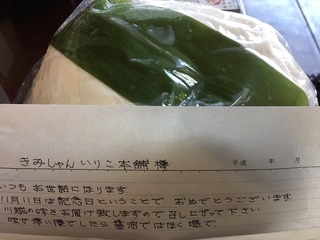 きみしゃんいりこ本舗様
平成 年 月
いつもお世話になります
11月11日は記念日ということで おめでとうございます
の味をお届け致しますので召し上がって下さい
味が薄い様でしたら醤油ではなく塩で